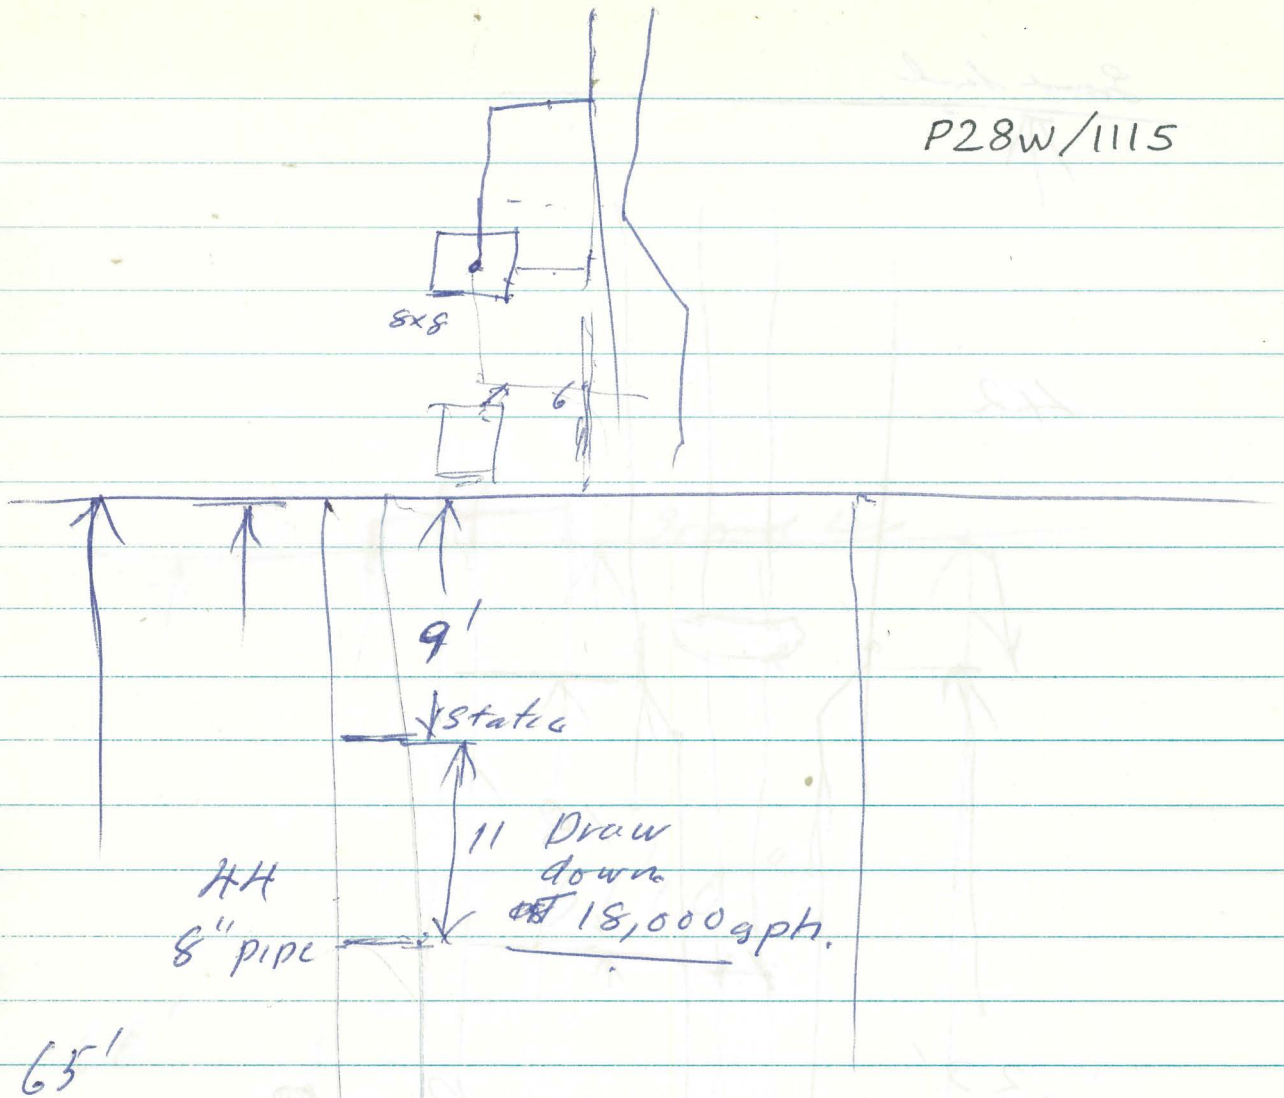 P28W/1115
8x8
6
9'
Static
11 Draw
down
18,000 gph.
44
8" pipe
65'